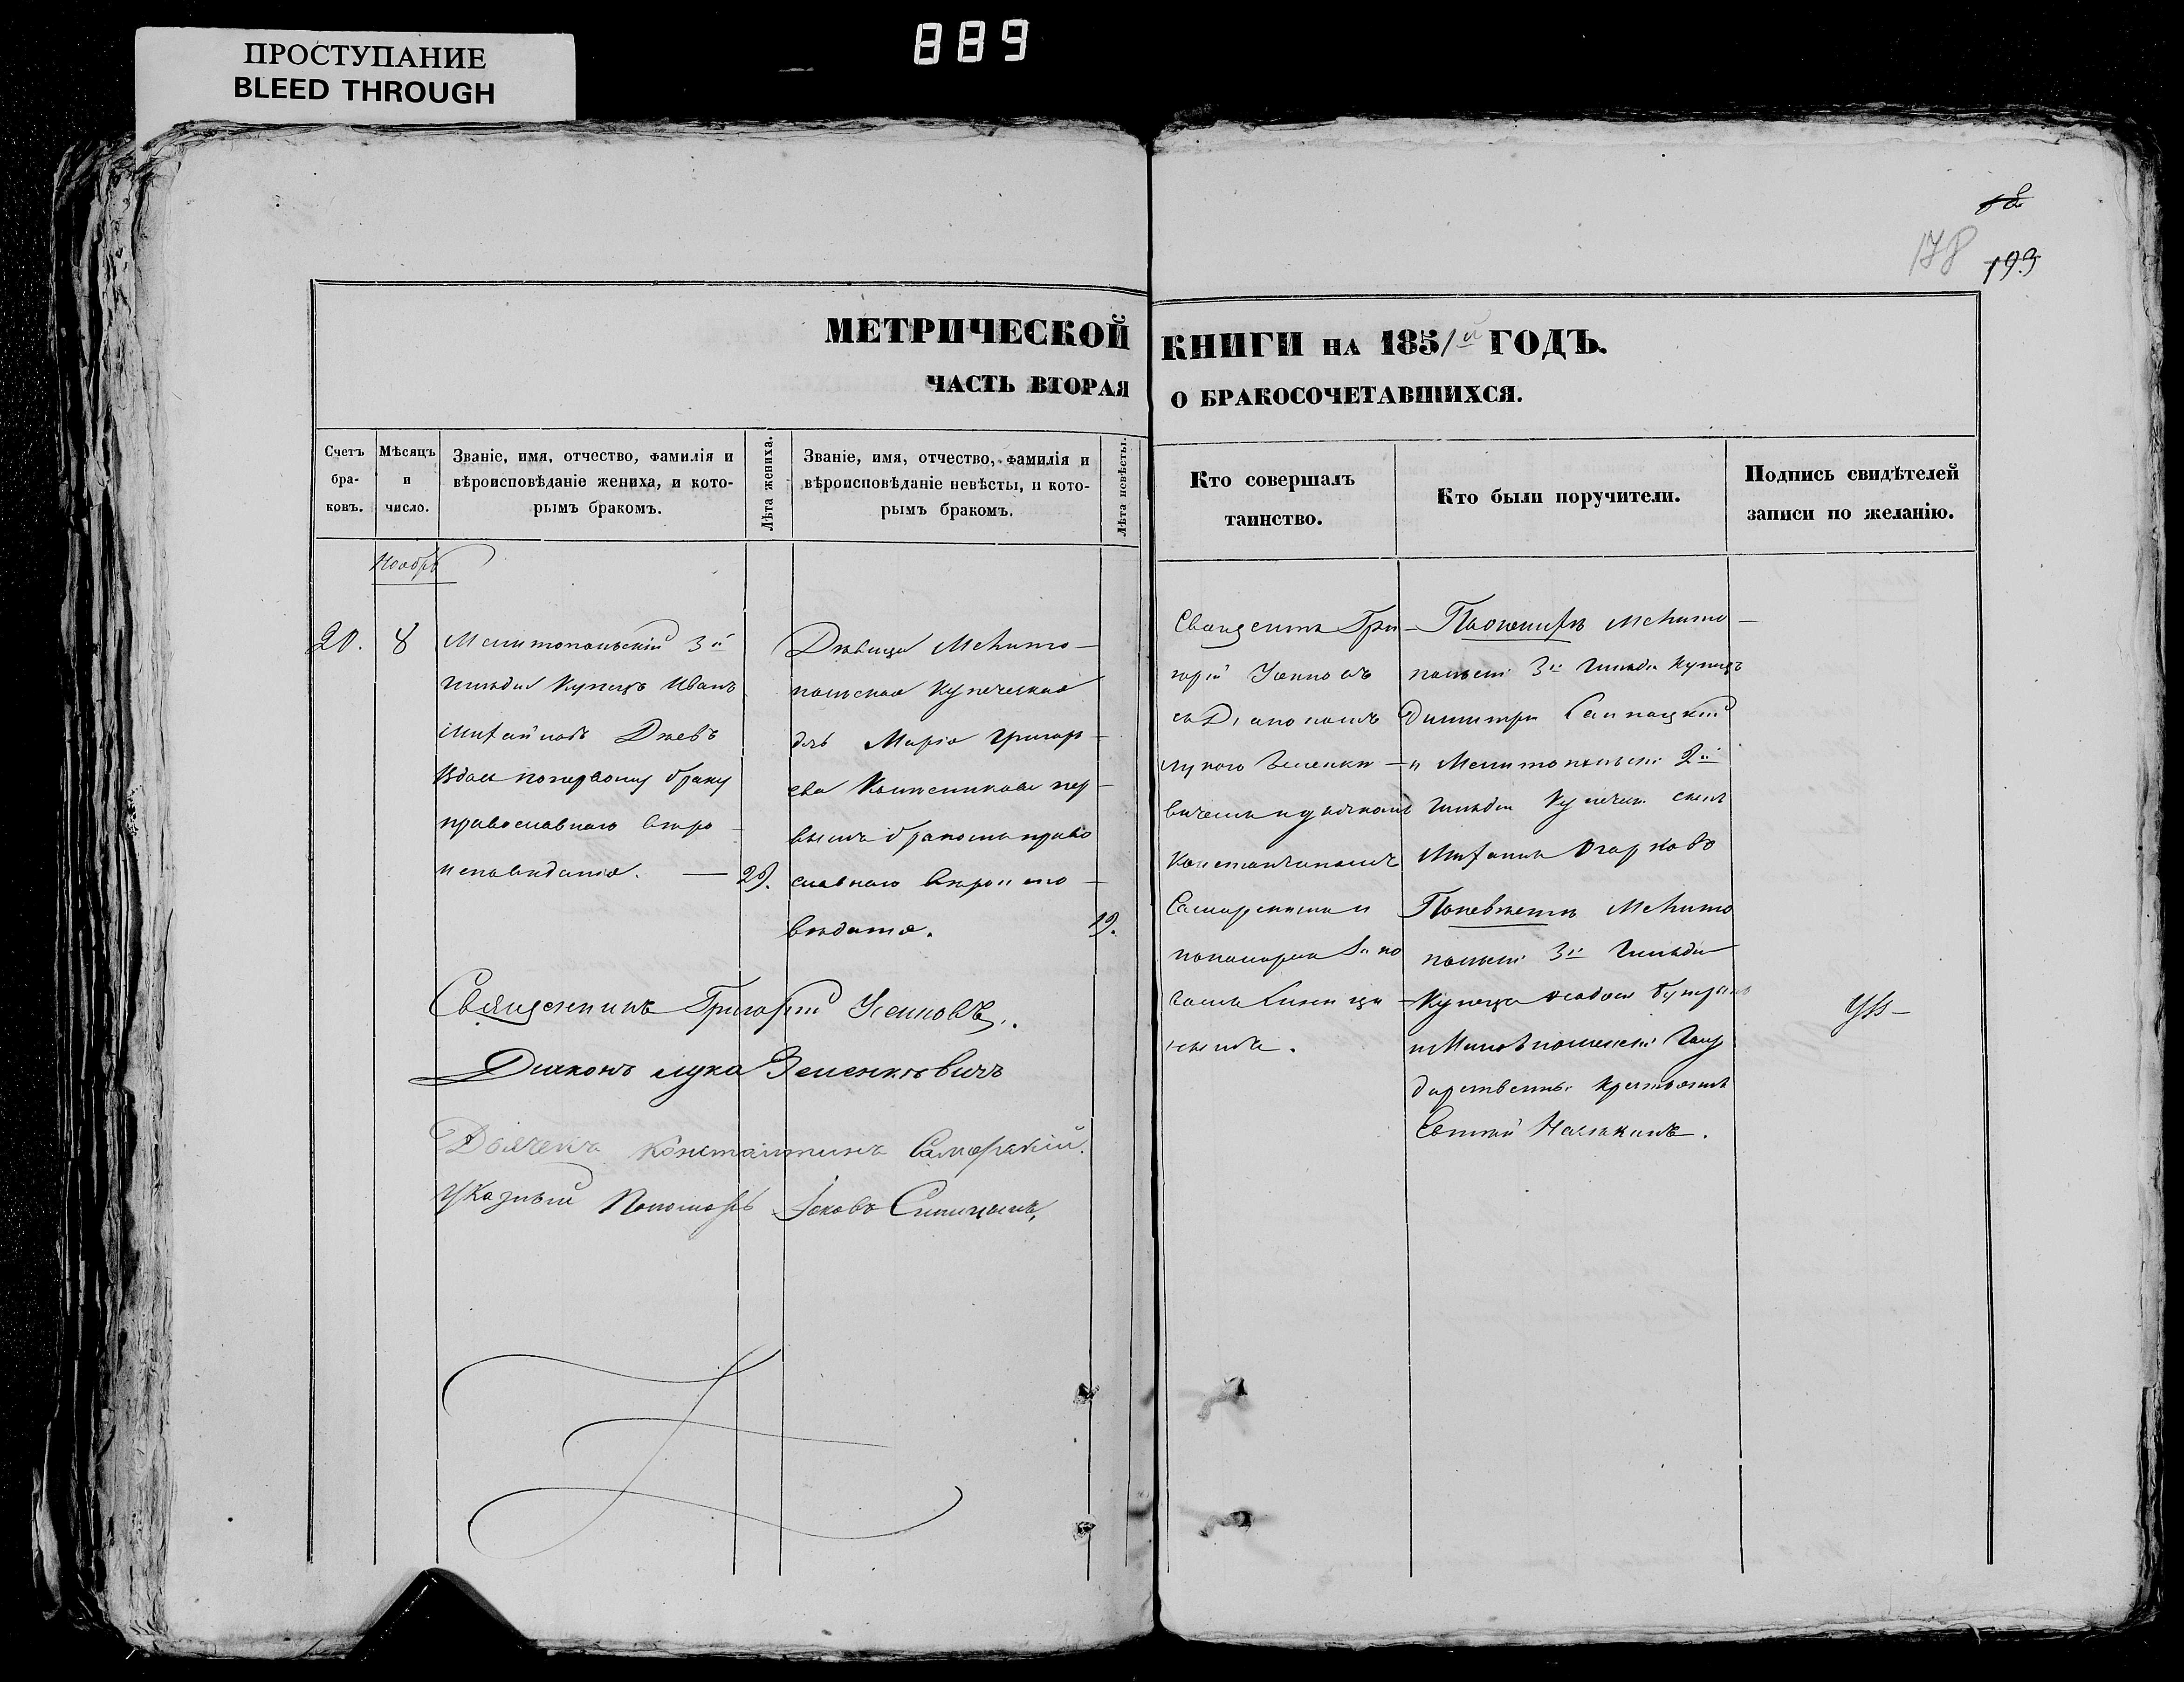 889
ПРОСТУПАНИЕ
BLEED THROUGH
178
193
МЕТРИЧЕСКОЙ КНИГИ НА 1851й ГОДЪ.
ЧАСТЬ ВТОРАЯ О БРАКОСОЧЕТАВШИХСЯ.
Счетъ бра-ковъ.
Мѣсяцъ и число.
Званіе, имя, отчество, фамилія и
вѣроисповѣданіе жениха, и кото-
рымъ бракомъ.
Лѣта жениха.
Званіе, имя, отчество, фамилія и
вѣроисповѣданіе невѣсты, и кото-
рымъ бракомъ.
Лѣта невѣсты.
Кто совершалъ
таинство.
Кто были поручители.
Подпись свидѣтелей
записи по желанію.
Ноябрь
20.
8
Мелитопольскій 3й
гильдіи Купецъ Иванъ
православнаго вѣро
исповѣданія. — 29.
Дѣвица Мелито-
польская Купеческая
дочь Марія Григорь-
ева
вымъ бракомъ право
славнаго вѣроиспо-
вѣданія. 19.
Священникъ Гри-
горій
съ Діакономъ
Лукою Зеленке-
вичемъ и дьячкомъ
Константиномъ
Самарскимъ и
пономаремъ Іако
вомъ Синицы
нымъ.
По женихѣ Мелито-
польскій 3й Гильдіи Купецъ
Димитрій
и Мелитопольскій 2й
гильдіи Купеческ. сынъ
По невѣстѣ Мелито
польскій 3й Гильдіи
Купецъ
Госу
дарственный Крестьянинъ
Священникъ Григорій
Діаконъ Лука Зеленкевичъ
Дьячекъ Константинъ Самарскій.
Указный Пономарь Іаковъ Синицынъ,